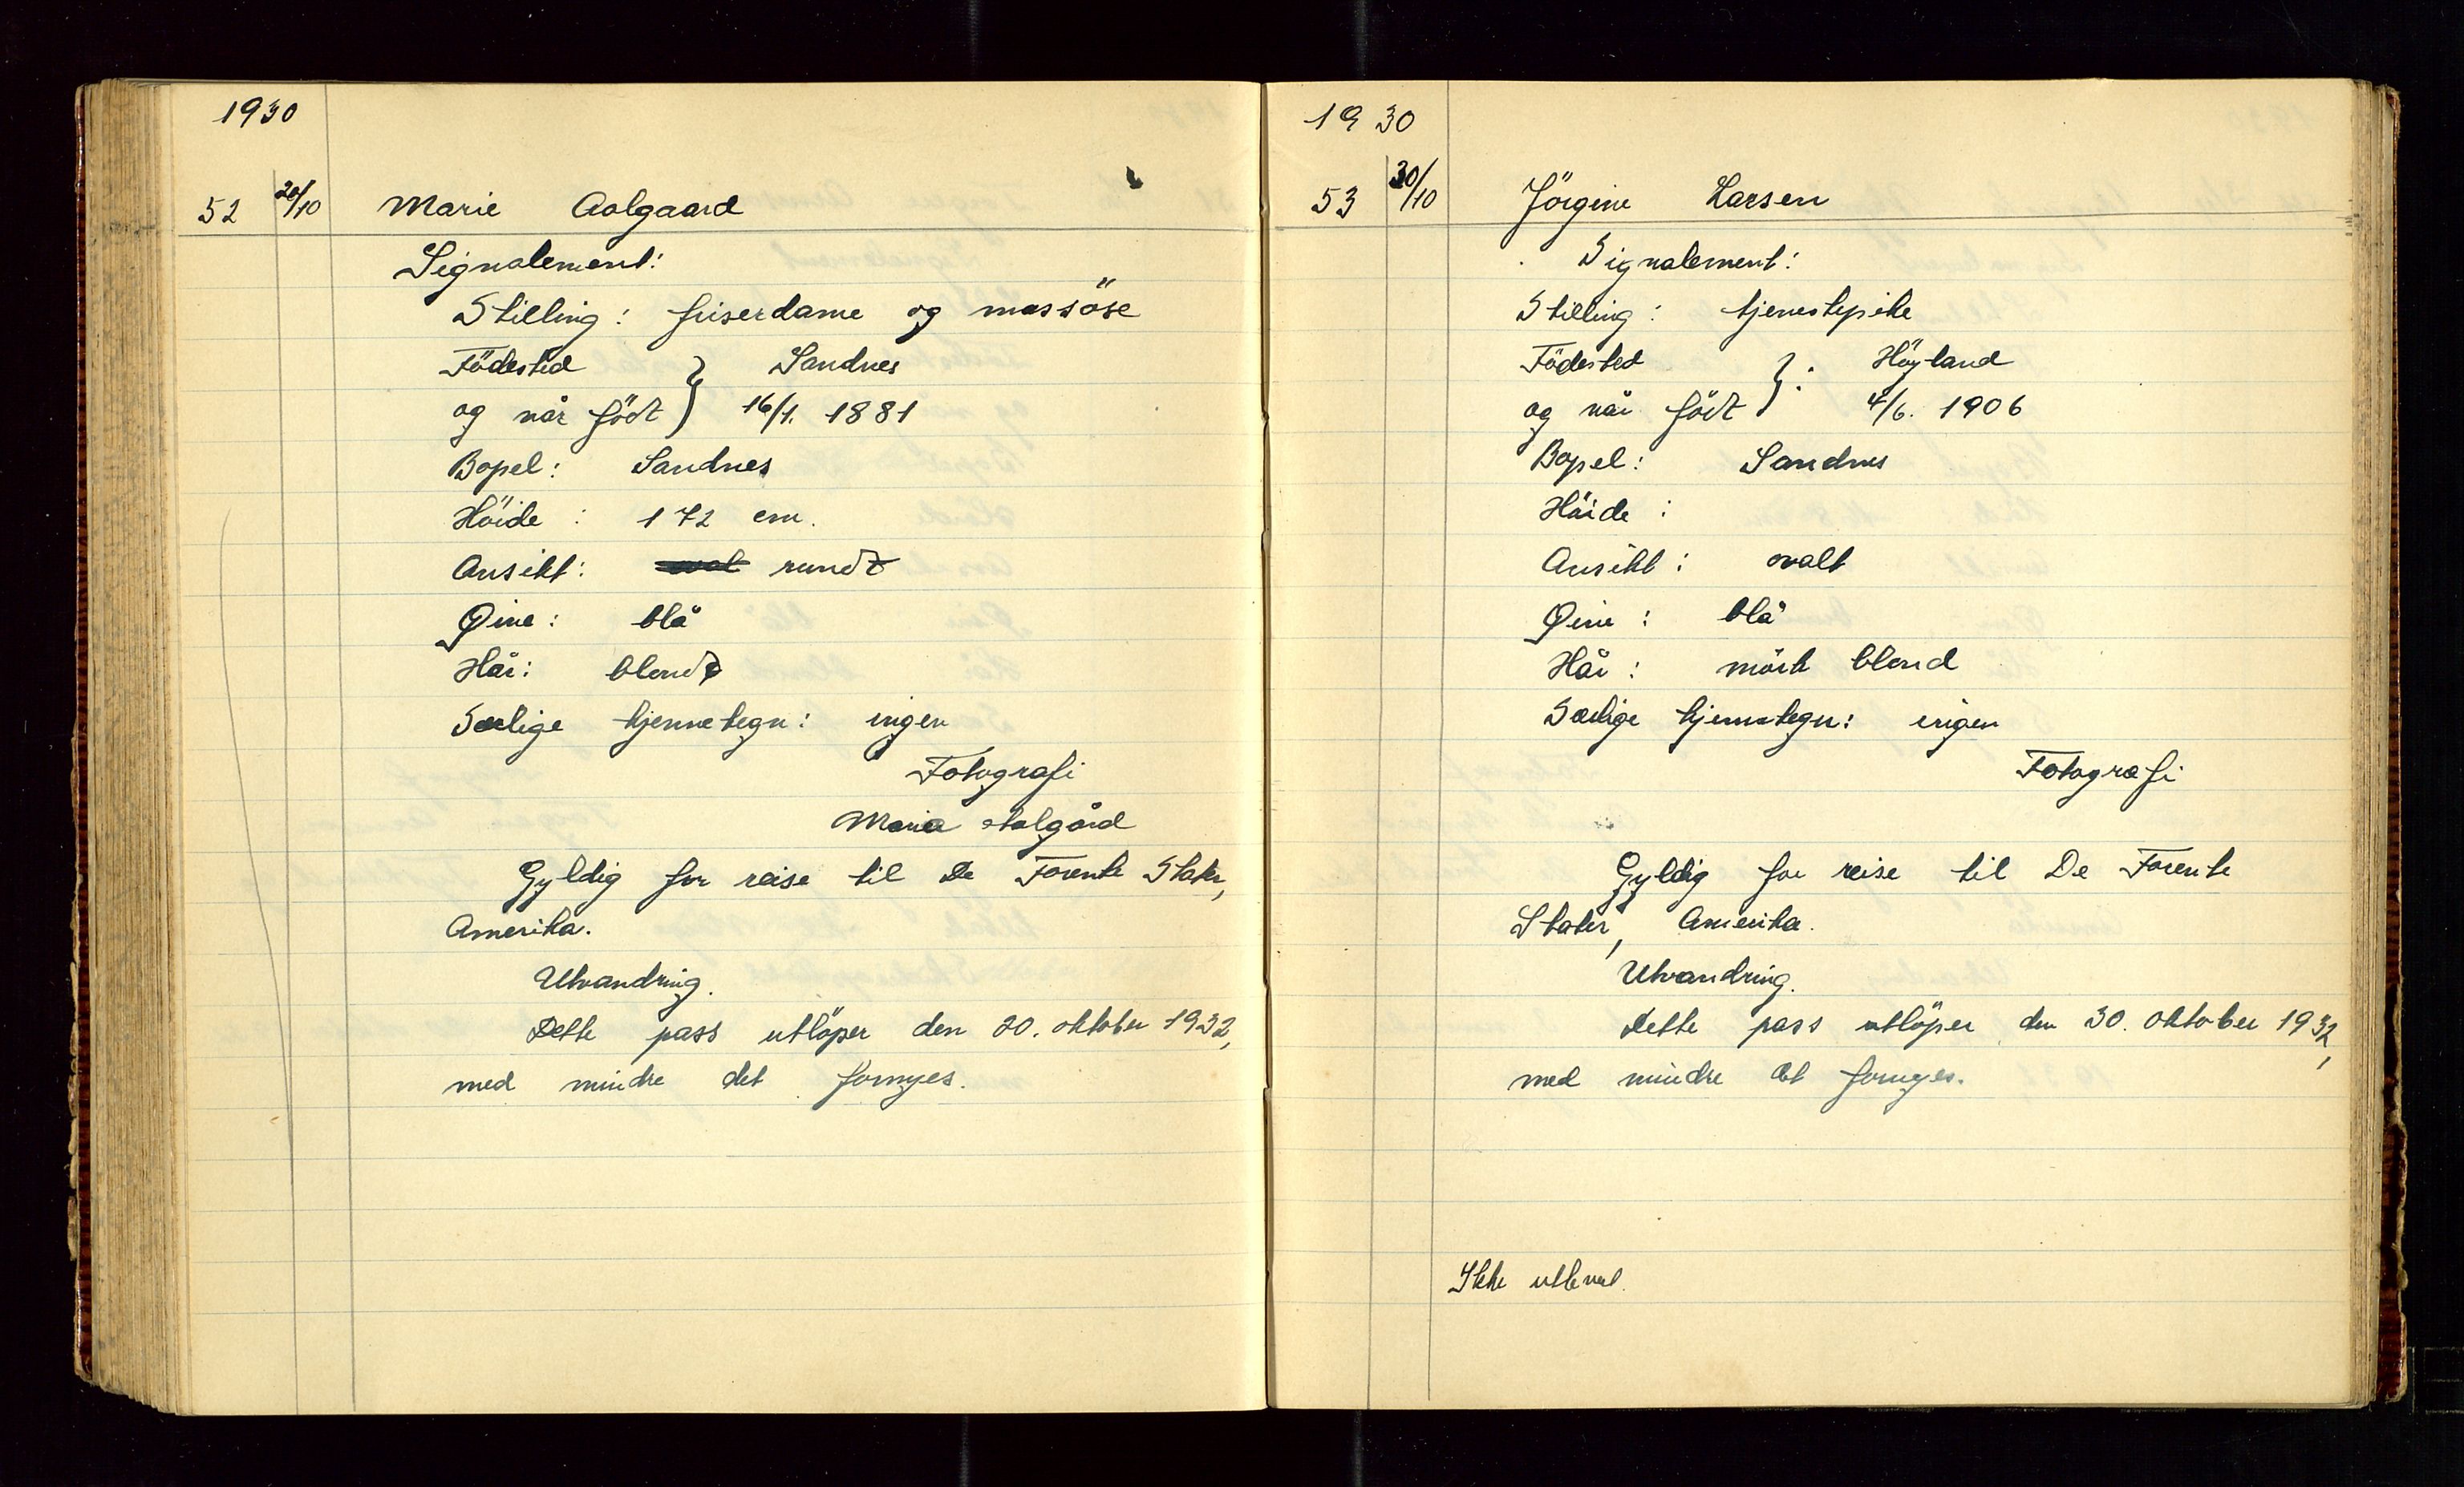 1930
52 20/10 Marie Aalgaard
Signalement:
Stilling: friserdame og massöse
Födested } Sandnes
og når födt } 16/1. 1881
Bopel: Sandnes
Höide : 172 cm.
Ansikt: oval rundt
Øine: blå
Hår: blond
Særlige kjennetegn: ingen
Fotografi
Maria Aalgård
Gyldig for reise til De Forente Stater,
Amerika.
Utvandring.
Dette pass utlöper den 20. oktober 1932,
med mindre det fornyes.
1930
53 30/10 Jörgine Larsen
Signalement:
Stilling: tjenestepike
Födested } : Höyland
og når födt } 4/6. 1906
Bopel: Sandnes
Höide :
Ansikt : ovalt
Øine : blå
Hår : mörk blond
Særlige kjennetegn: ingen
Fotografi
Gyldig for reise til De Forente
Stater, Amerika.
Utvandring.
Dette pass utlöper den 30. oktober 1932,
med mindre det fornyes.
Ikke utlevert.